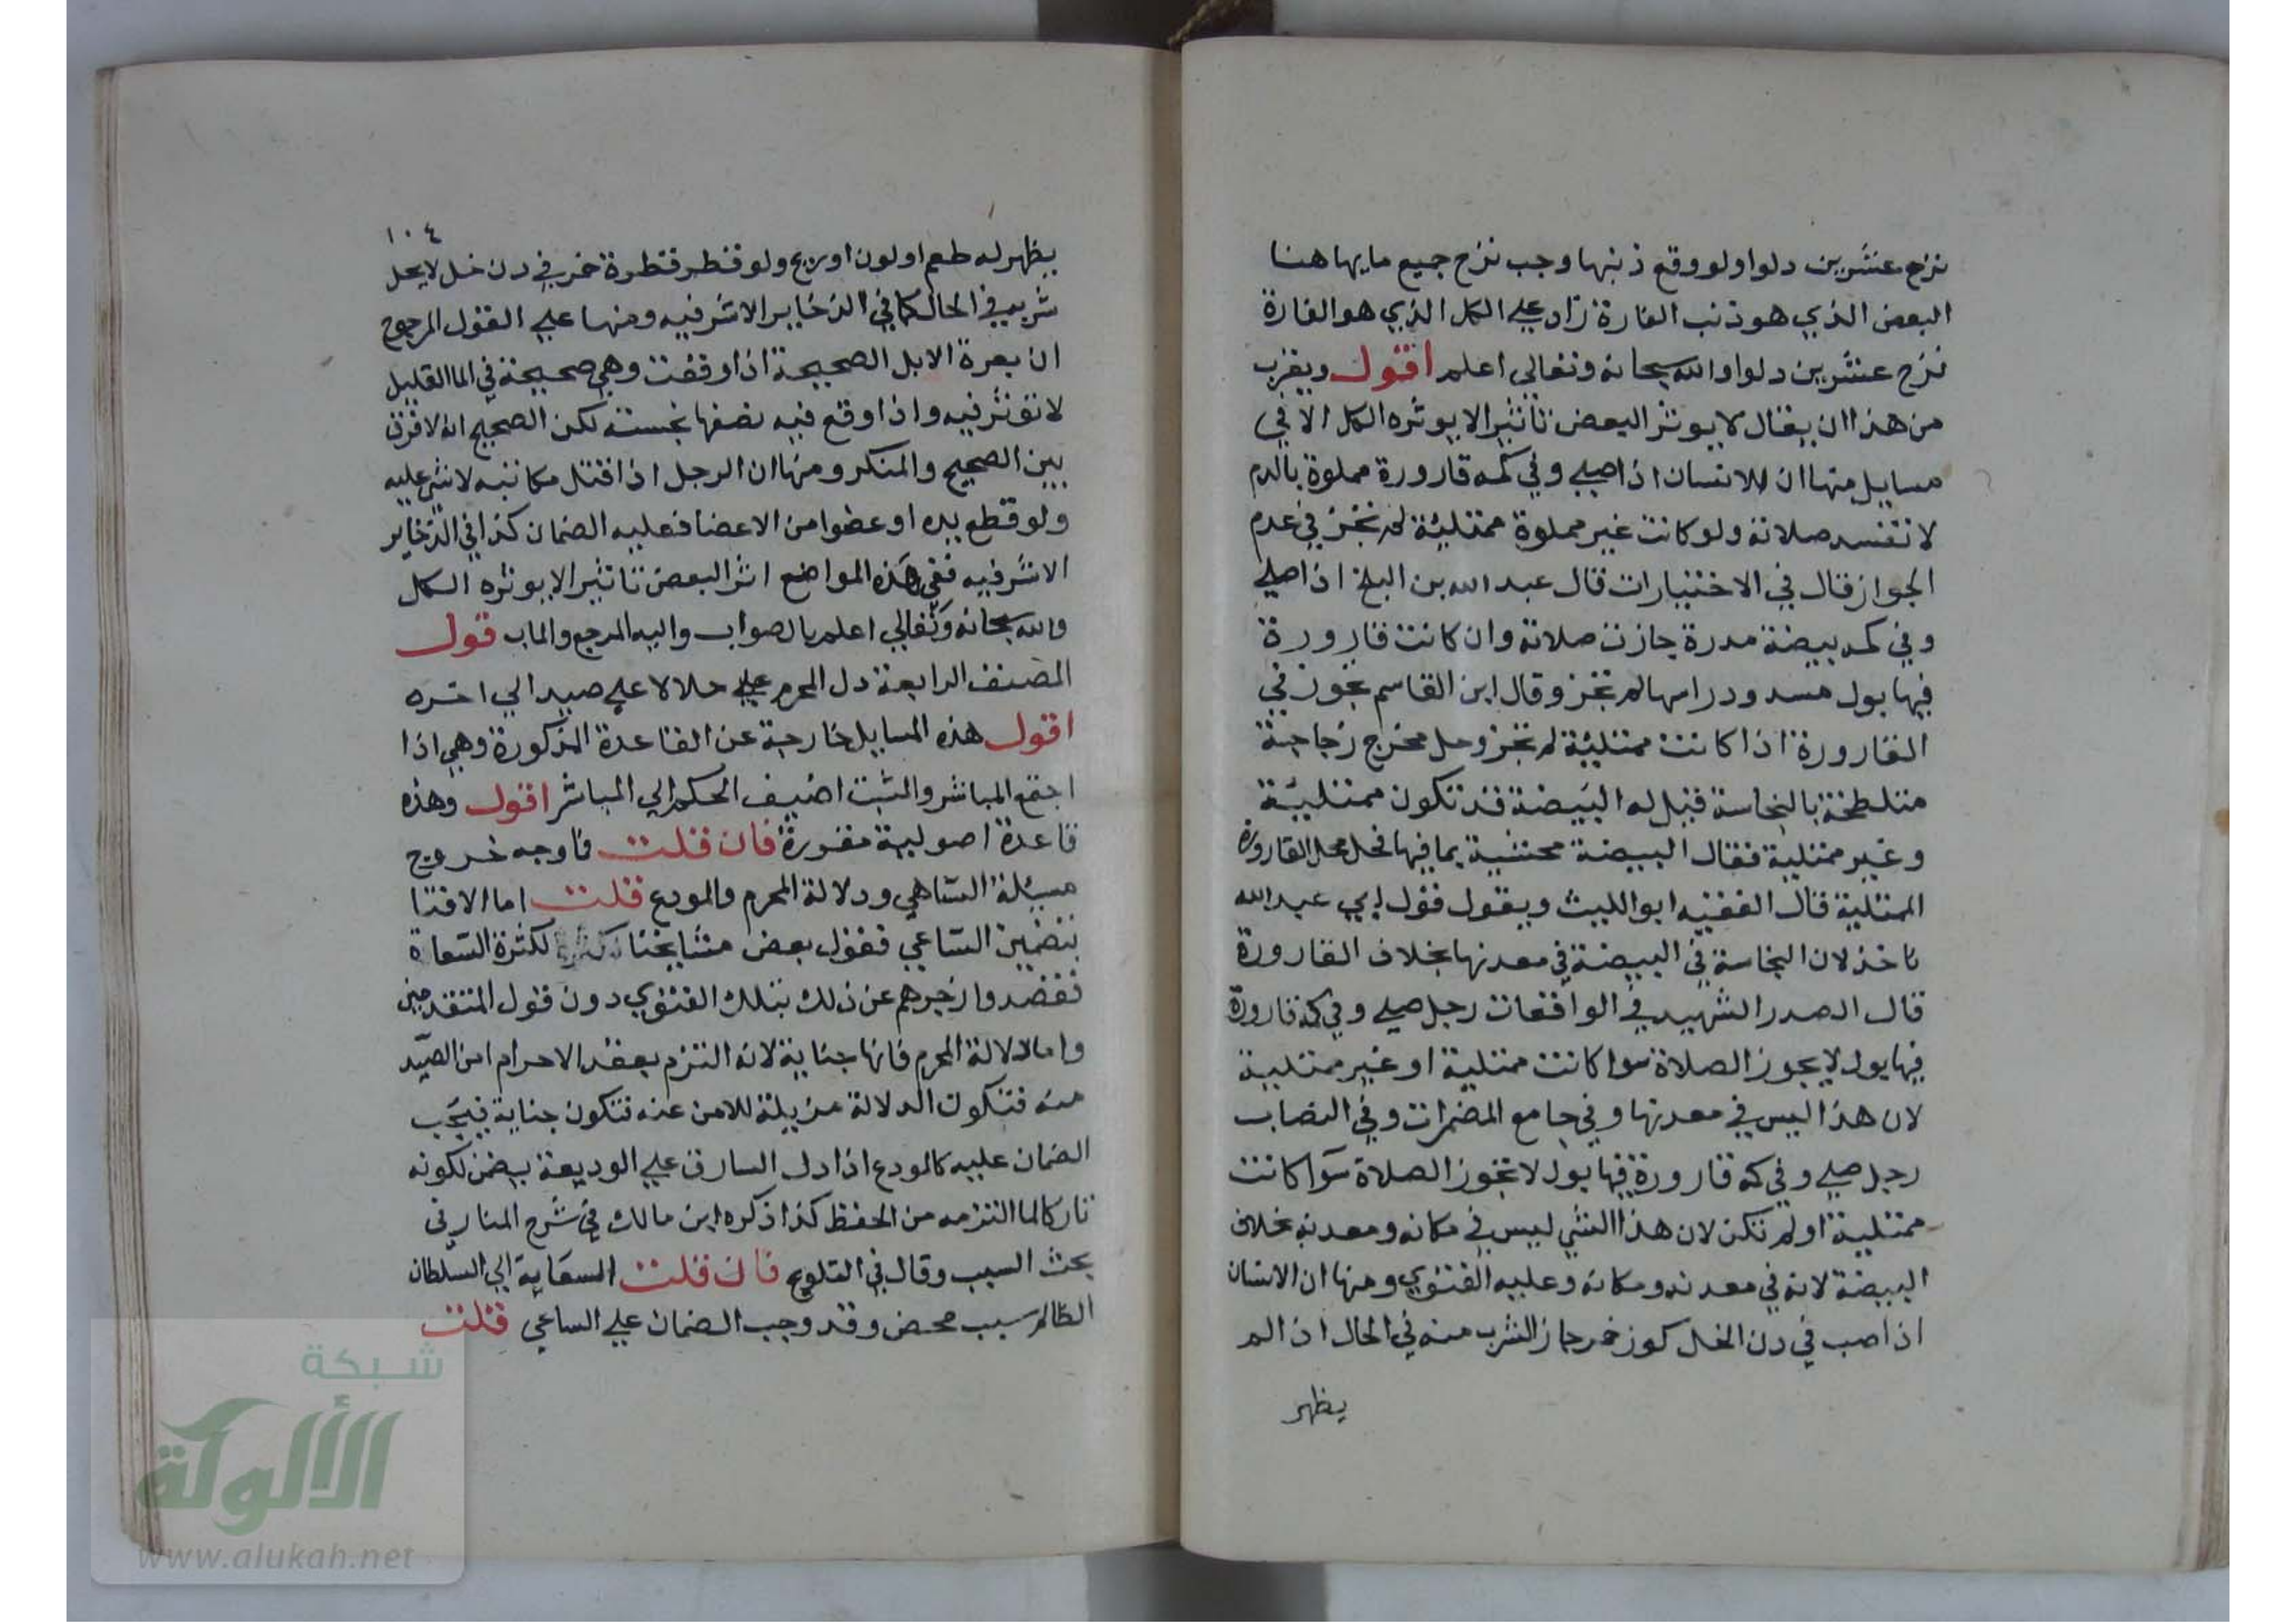 نزح عشرين دلوا ولو وقع ذنبها وجب نزح جميع مابها هنا
البعض الذي هو ذنب الفارة زاد علي الكل الذي هو الفارة
نزح عشرين دلوا والله سبحانه وتعالي اعلم اقول ويقرب
من هذا ان يقال لا يوثر البعض تاثيرا لا يوثره الكل الا في
مسايل منها ان الانسان اذا صلي وفي كمه قارورة مملوة بالدم
لا تفسد صلاته ولو كانت غير مملوة ممتلئة لم تجز في عدم
الجواز قال في الاختيارات قال عبد الله بن البلخ اذا صلي
وفي كمه بيضة مدرة جازت صلاته وان كانت قارورة
فيها بول مسدود راسها لم تجز وقال ابن القاسم يجوز في
القارورة اذا كانت ممتلئة لم تجز وحل مخرج زجاجة
متلطخة بالنجاسة قيل له البيضة قد تكون ممتليئة
وغير ممتلية فقال البيضة محتشية بما فيها فحل محل القارورة
الممتلية قال الفقيه ابو الليث وبقول قول ابي عبد الله
ناخذ لان النجاسة في البيضة في معدنها بخلاف القارورة
قال الصدر الشهيد في الواقعات رجل صلي وفي كمه قارورة
فيها بول لا يجوز الصلاة سوا كانت ممتلية او غير ممتلية
لان هذا ليس في معدنها وفي جامع المضمرات وفي النصاب
رجل صلي وفي كمه قارورة فيها بول لا تجوز الصلاة سوا كانت
ممتلية او لم تكن لان هذا الشي ليس في مكانه ومعدنه بخلاف
البيضة لانه في معدنه ومكانه وعليه الفتوي ومنها ان الانسان
اذا صب في دن الخل كوز خمر جاز الشرب منه في الحال اذا لم
يظهر
١٠٤
يظهر له طعم او لون او ريح ولو قطر قطرة خمر في دن خل لا يحل
شربه في الحال كما في الذخاير الاشرفيه ومنها علي القول المرجوح
ان بعرة الابل الصحيحة اذا وقعت وهي صحيحة في الما القليل
لا توثر فيه واذا وقع فيه نصفها نجسته لكن الصحيح انه لا فرق
بين الصحيح والمنكر ومنها ان الرجل اذا قتل مكاتبه لا شي عليه
ولو قطع يده او عضوا من الاعضا فعليه الضمان كذا في الذخاير
الاشرفيه ففي هذه المواضع اثر البعض تاثيرا لا يوثره الكل
والله سبحانه وتعالي اعلم بالصواب واليه المرجع والماب قول
المصنف الرابعة دل المحرم علي حلالا علي صيد الي اخره
اقول هذه المسايل خارجة عن القاعدة المذكورة وهي اذا
اجتمع المباشر والمتسبب اضيف الحكم الي المباشر اقول وهذه
قاعدة اصولية مقررة فان قلت فاوجه خروج
مسئلة الساهي ودلالة المحرم والمودع قلت اما الافتا
بتضمين الساعي فقول بعض مشايخنا لكثرة السعاة
فقصدوا زجرهم عن ذلك بتلك الفتوي دون قول المتقدمين
واما دلالة المحرم فانها جناية لانه التزم بعقد الاحرام امن الصيد
منه فتكون الدلالة مزيلة للامن عنه فتكون جناية فيجب
الضمان عليه كالمودع اذا دل السارق علي الوديعة يضمن لكونه
تاركا لما التزمه من الحفظ كذا ذكره ابن مالك في شرح المنار في
بحث السبب وقال في التلويح فان قلت السعاية الي السلطان
الظالم سبب محض وقد وجب الضمان علي الساعي قلت
شبكة
الألوكة
www.alukah.net